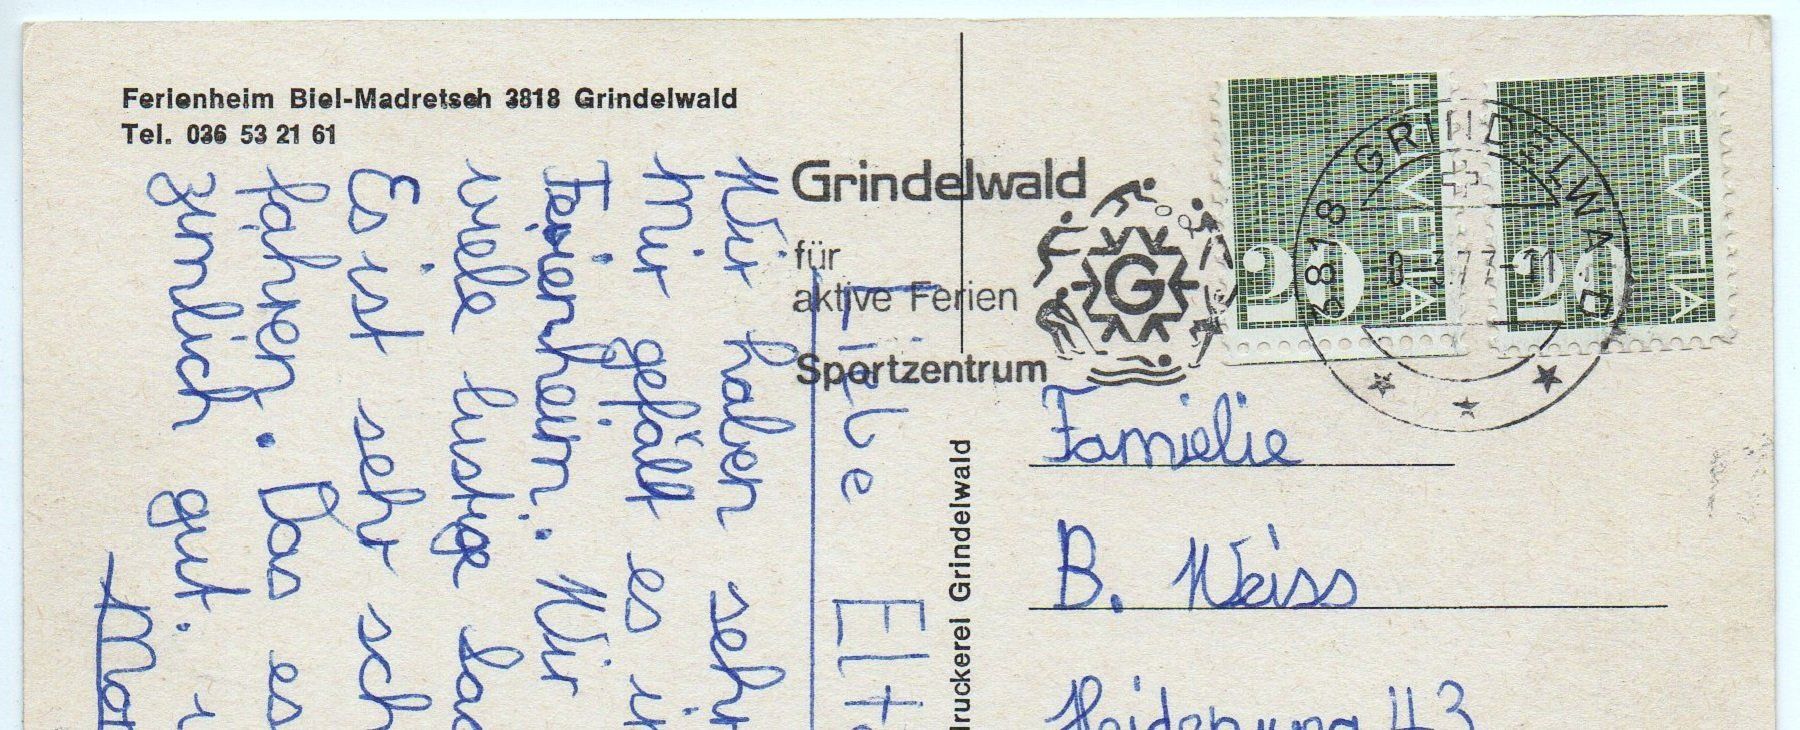 Ferienheim Biel-Madretsch 3818 Grindelwald
Tel. 036 53 21 61
Grindelwald
für
aktive Ferien
Sportzentrum
HELVETIA
20
HELVETIA
20
3818 GRINDELWALD
Liebe Elte
Wir haben sehr
Mir gefällt es i
Ferienheim. Wir
viele lustige
Es ist sehr sch
fahren. Das es
zimlich gut.
druckerei Grindelwald
Familie
B. Weiss
43